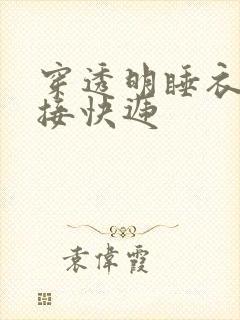 穿透明睡衣
接快递
袁偉霞